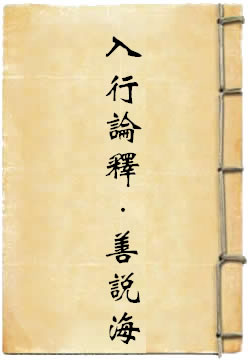 入行論釋．善說海